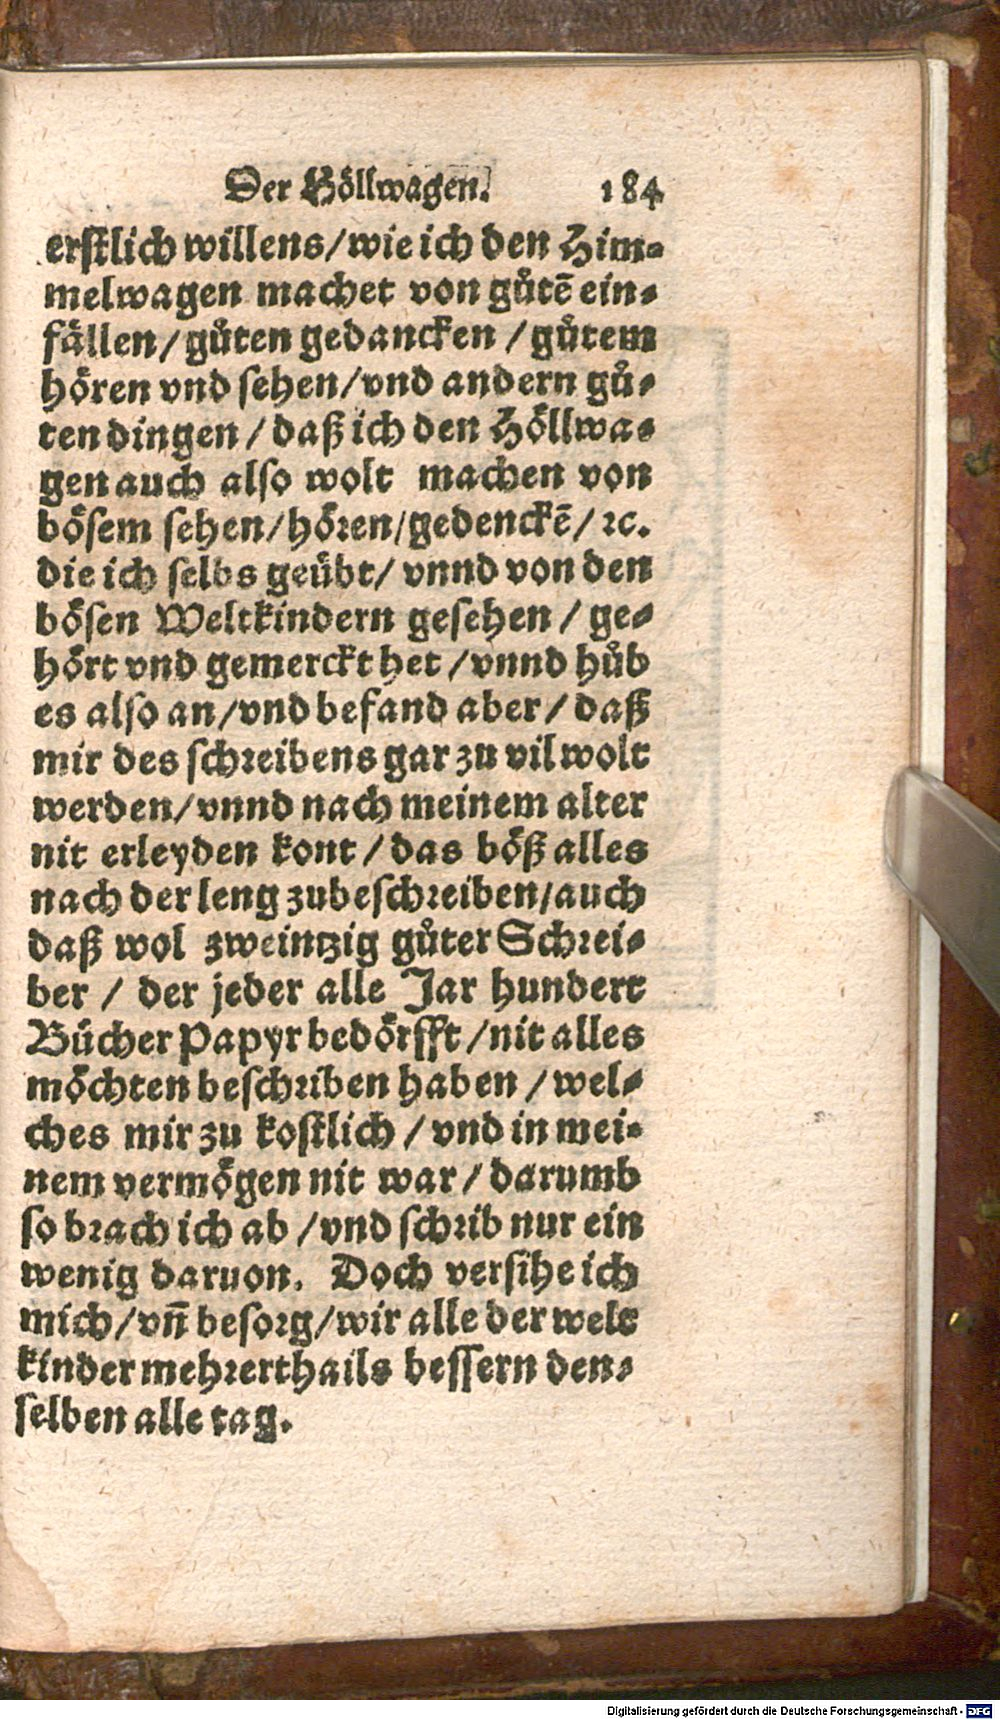 Der Höllwagen. 184
erstlich willens/wie ich den Him-
melwagen machet von gůtē ein-
fällen/gůten gedancken /gůtem
hören vnd sehen/vnd andern gů-
ten dingen/ daß ich den Höllwa-
gen auch also wolt machen von
bösem sehen/hören/gedenckē/ ꝛc.
die ich selbs geübt/ vnnd von den
bösen Weltkindern gesehen / ge-
hört vnd gemerckt het /vnnd hůb
es also an/vnd befand aber/ daß
mir des schreibens gar zu vil wolt
werden/vnnd nach meinem alter
nit erleyden kont /das böß alles
nach der leng zubeschreiben/auch
daß wol zweintzig gůter Schrei-
ber / der jeder alle Jar hundert
Bücher Papyr bedörfft /nit alles
möchten beschriben haben /wel-
ches mir zu kostlich /vnd in mei-
nem vermögen nit war/ darumb
so brach ich ab /vnd schrib nur ein
wenig daruon. Doch versihe ich
mich/vn̄ besorg/wir alle der welt
kinder mehrerthails bessern den-
selben alle tag.
Digitalisierung gefördert durch die Deutsche Forschungsgemeinschaft - DFG